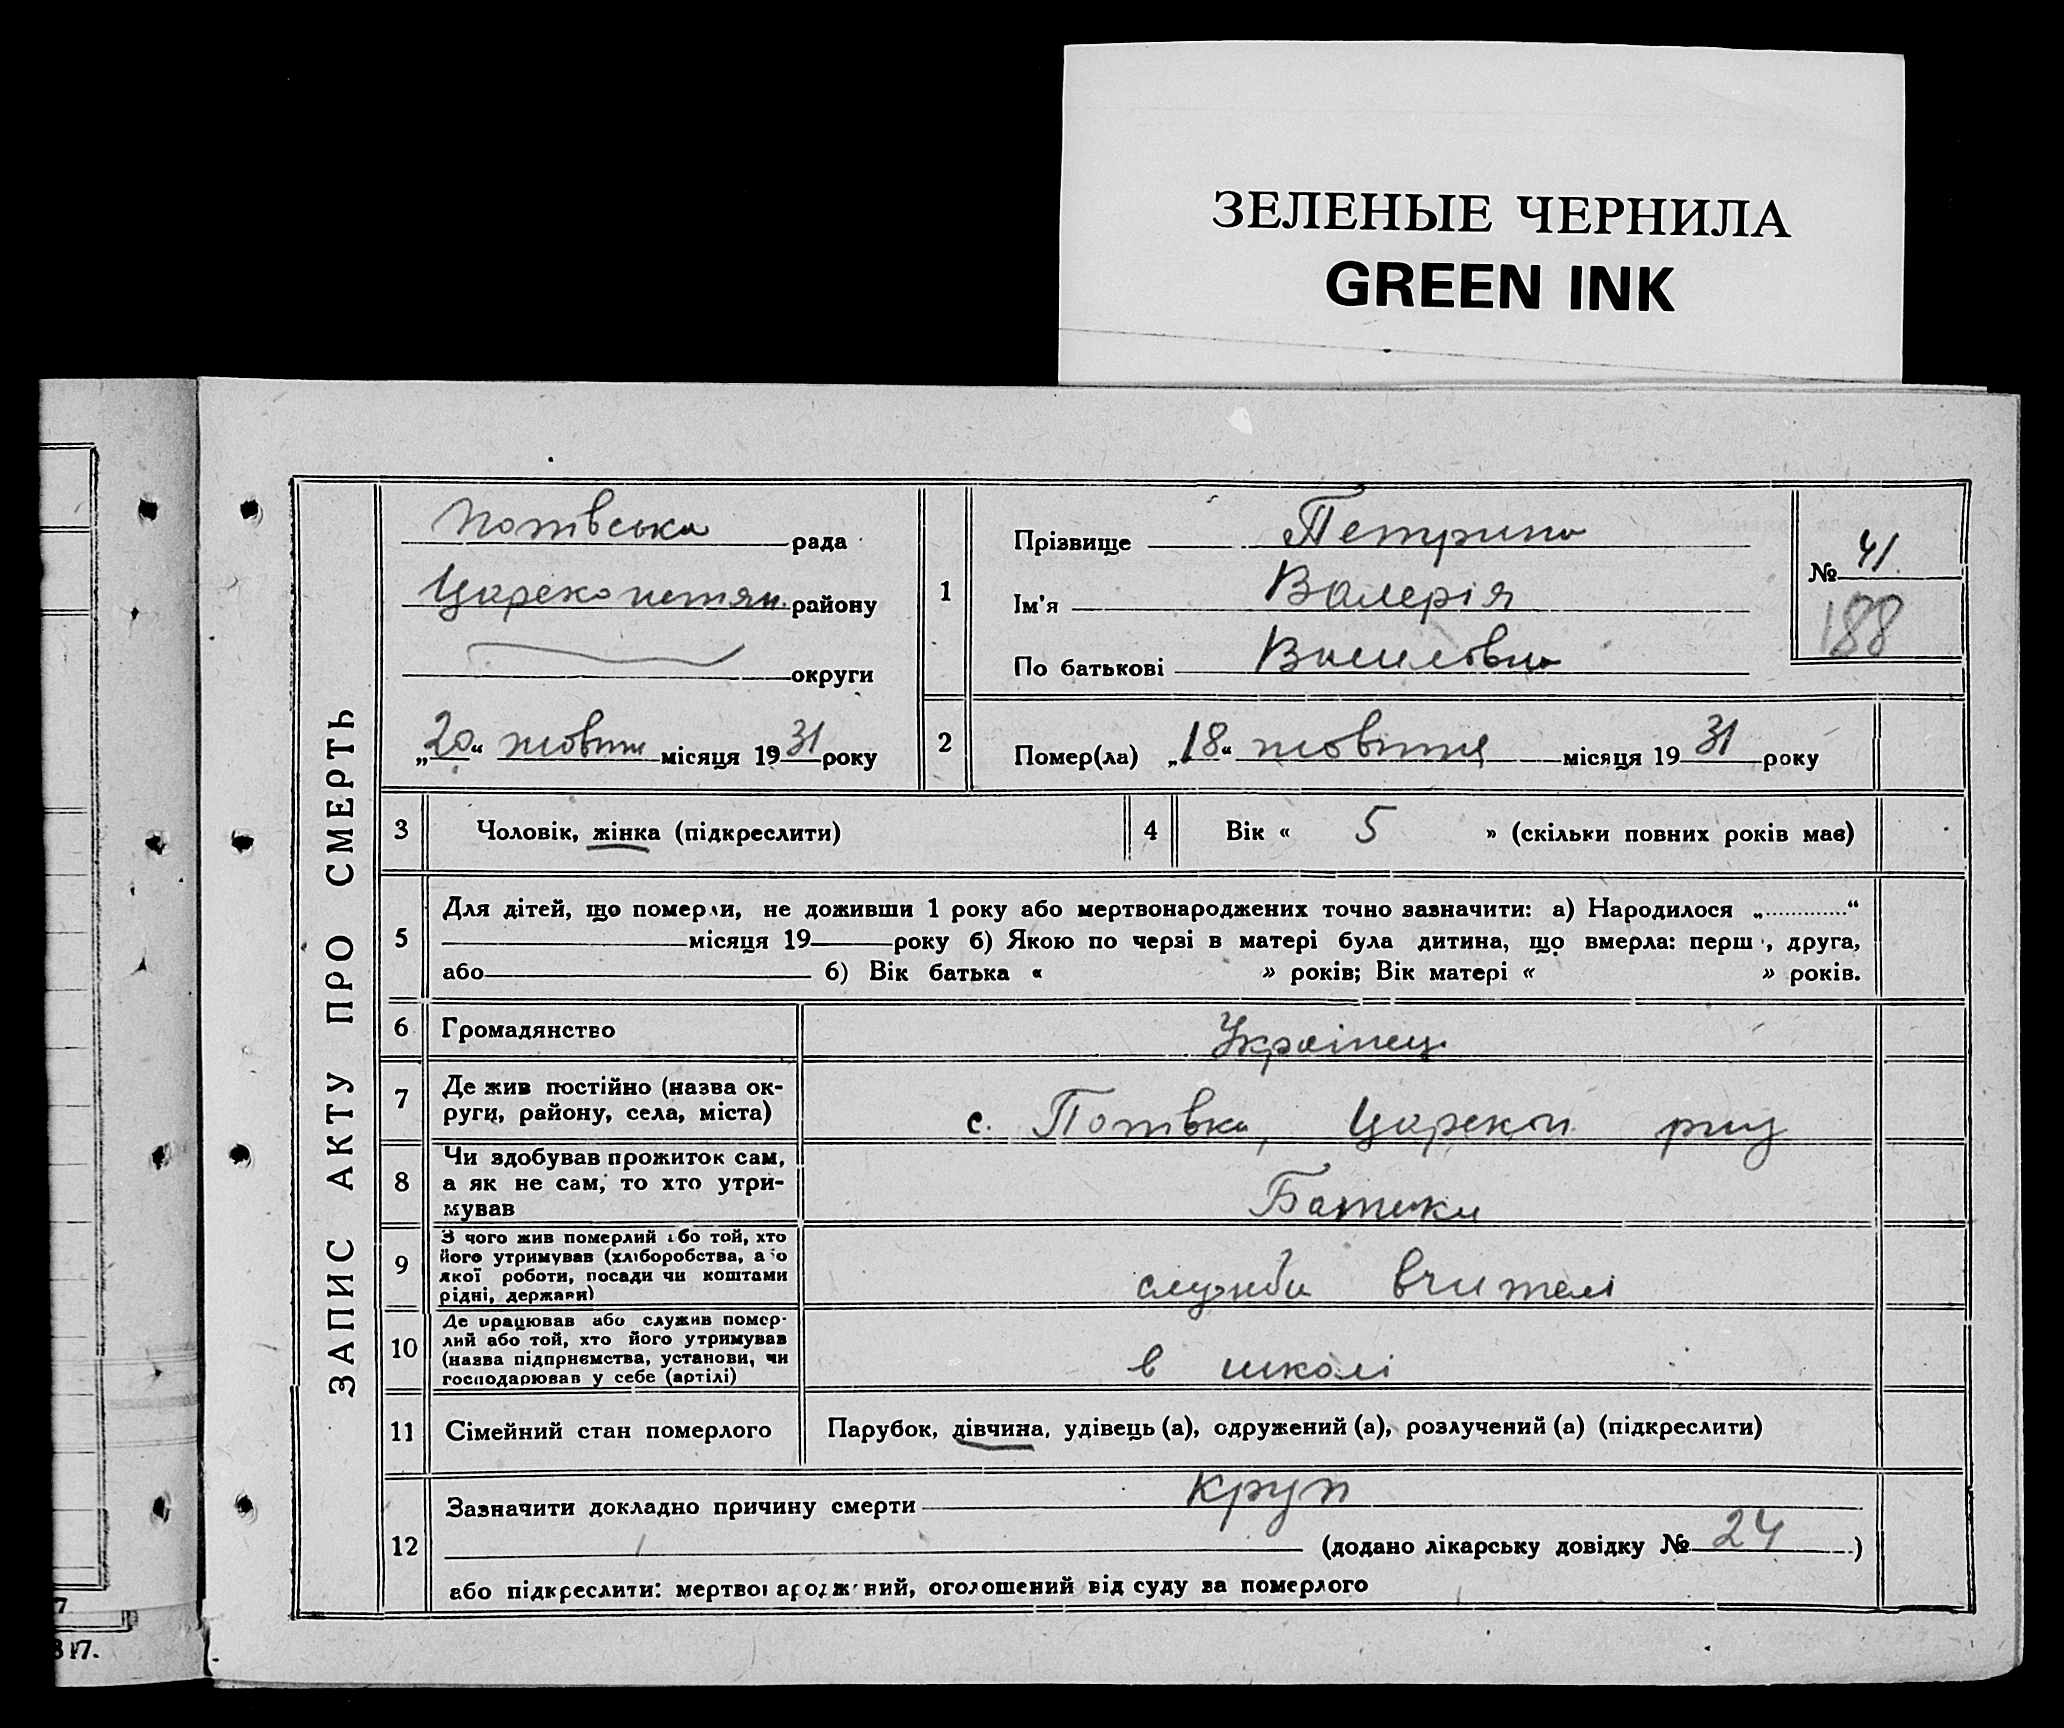 ЗЕЛЕНЫЕ ЧЕРНИЛА
GREEN INK
ЗАПИС АКТУ ПРО СМЕРТЬ
Потівська рада
району
округи
„20“ жовтня місяця 1931 року
1
Прізвище Петрина
Ім'я Валерія
По батькові Василівна
№ 41.
188
2
Помер(ла) „18“ жовтня місяця 1931 року
3 Чоловік, жінка (підкреслити)
4 Вік « 5 » (скільки повних років має)
5
Для дітей, що померли, не доживши 1 року або мертвонароджених точно зазначити: а) Народилося „............“
місяця 19 року б) Якою по черзі в матері була дитина, що вмерла: перш , друга,
або б) Вік батька « » років; Вік матері « » років.
6 Громадянство Українец
7
Де жив постійно (назва ок-
руги, району, села, міста)
с. Потівка,
8
Чи здобував прожиток сам,
а як не сам, то хто утри-
мував
Батьки
9
З чого жив померлий або той, хто
його утримував (хліборобства, або
якої роботи, посади чи коштами
рідні, держави)
служби вчителі
10
Де працював або служив помер-
лий або той, хто його утримував
(назва підприємства, установи, чи
господарював у себе (артілі)
в школі
11 Сімейний стан померлого Парубок, дівчина, удівець (а), одружений (а), розлучений (а) (підкреслити)
12
Зазначити докладно причину смерти круп
(додано лікарську довідку № 24 )
або підкреслити: мертвонароджений, оголошений від суду за померлого
7
317.